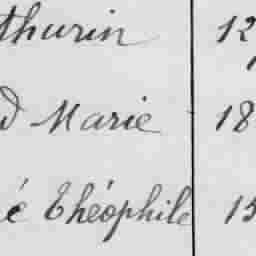 thurin 12
d Marie 18
é Théophile 15